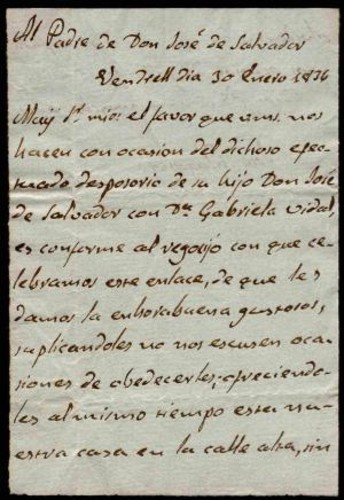 Al Padre de Don José de Salvador
Vendrell dia 30 Enero 1836
Muy Sr. mio: el favor que vms. nos
hacen con ocasion del dichoso efec-
tuado desposorio de su hijo Don José
de Salvador con Dª. Gabriela Vidal,
es conforme al regocijo con que ce-
lebramos este enlace, de que les
damos la enhorabuena gustosos,
suplicandoles no nos escusen oca-
siones de obedecerles; ofreciendo-
les al mismo tiempo esta nu-
estra casa en la calle alta, sin